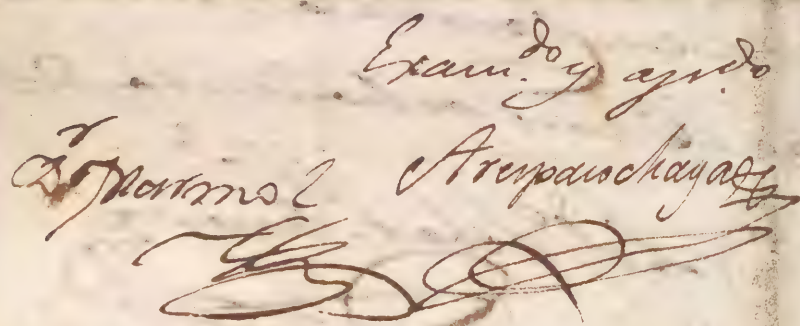 Exam.do y apr.do
Dr Marmol Arespacochaga